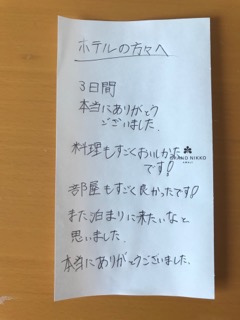 ホテルの方々へ
3日間
本当にありがとう
ございました.
料理もすごくおいしかった
です!
GRAND NIKKO
部屋もすごく良かったです!
また泊まりに来たいなと
思いました.
本当にありがとうございました.